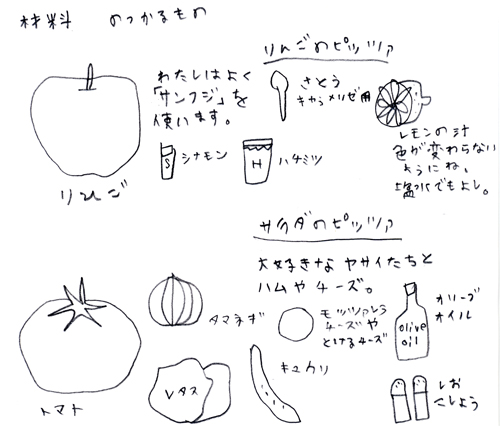 材料 のっかるもの
りんごのピッツァ
わたしはよく
「サンフジ」を
使います。
さとう
キャラメリゼ用
レモンの汁
色が変わらない
ようにね。
塩水でもよし。
S
シナモン
H
ハチミツ
りんご
サラダのピッツァ
大好きなヤサイたちと
ハムやチーズ。
タマネギ
モッツァレラ
チーズや
とけるチーズ
olive
oil
オリーブ
オイル
トマト
レタス
キュウリ
しお
こしょう